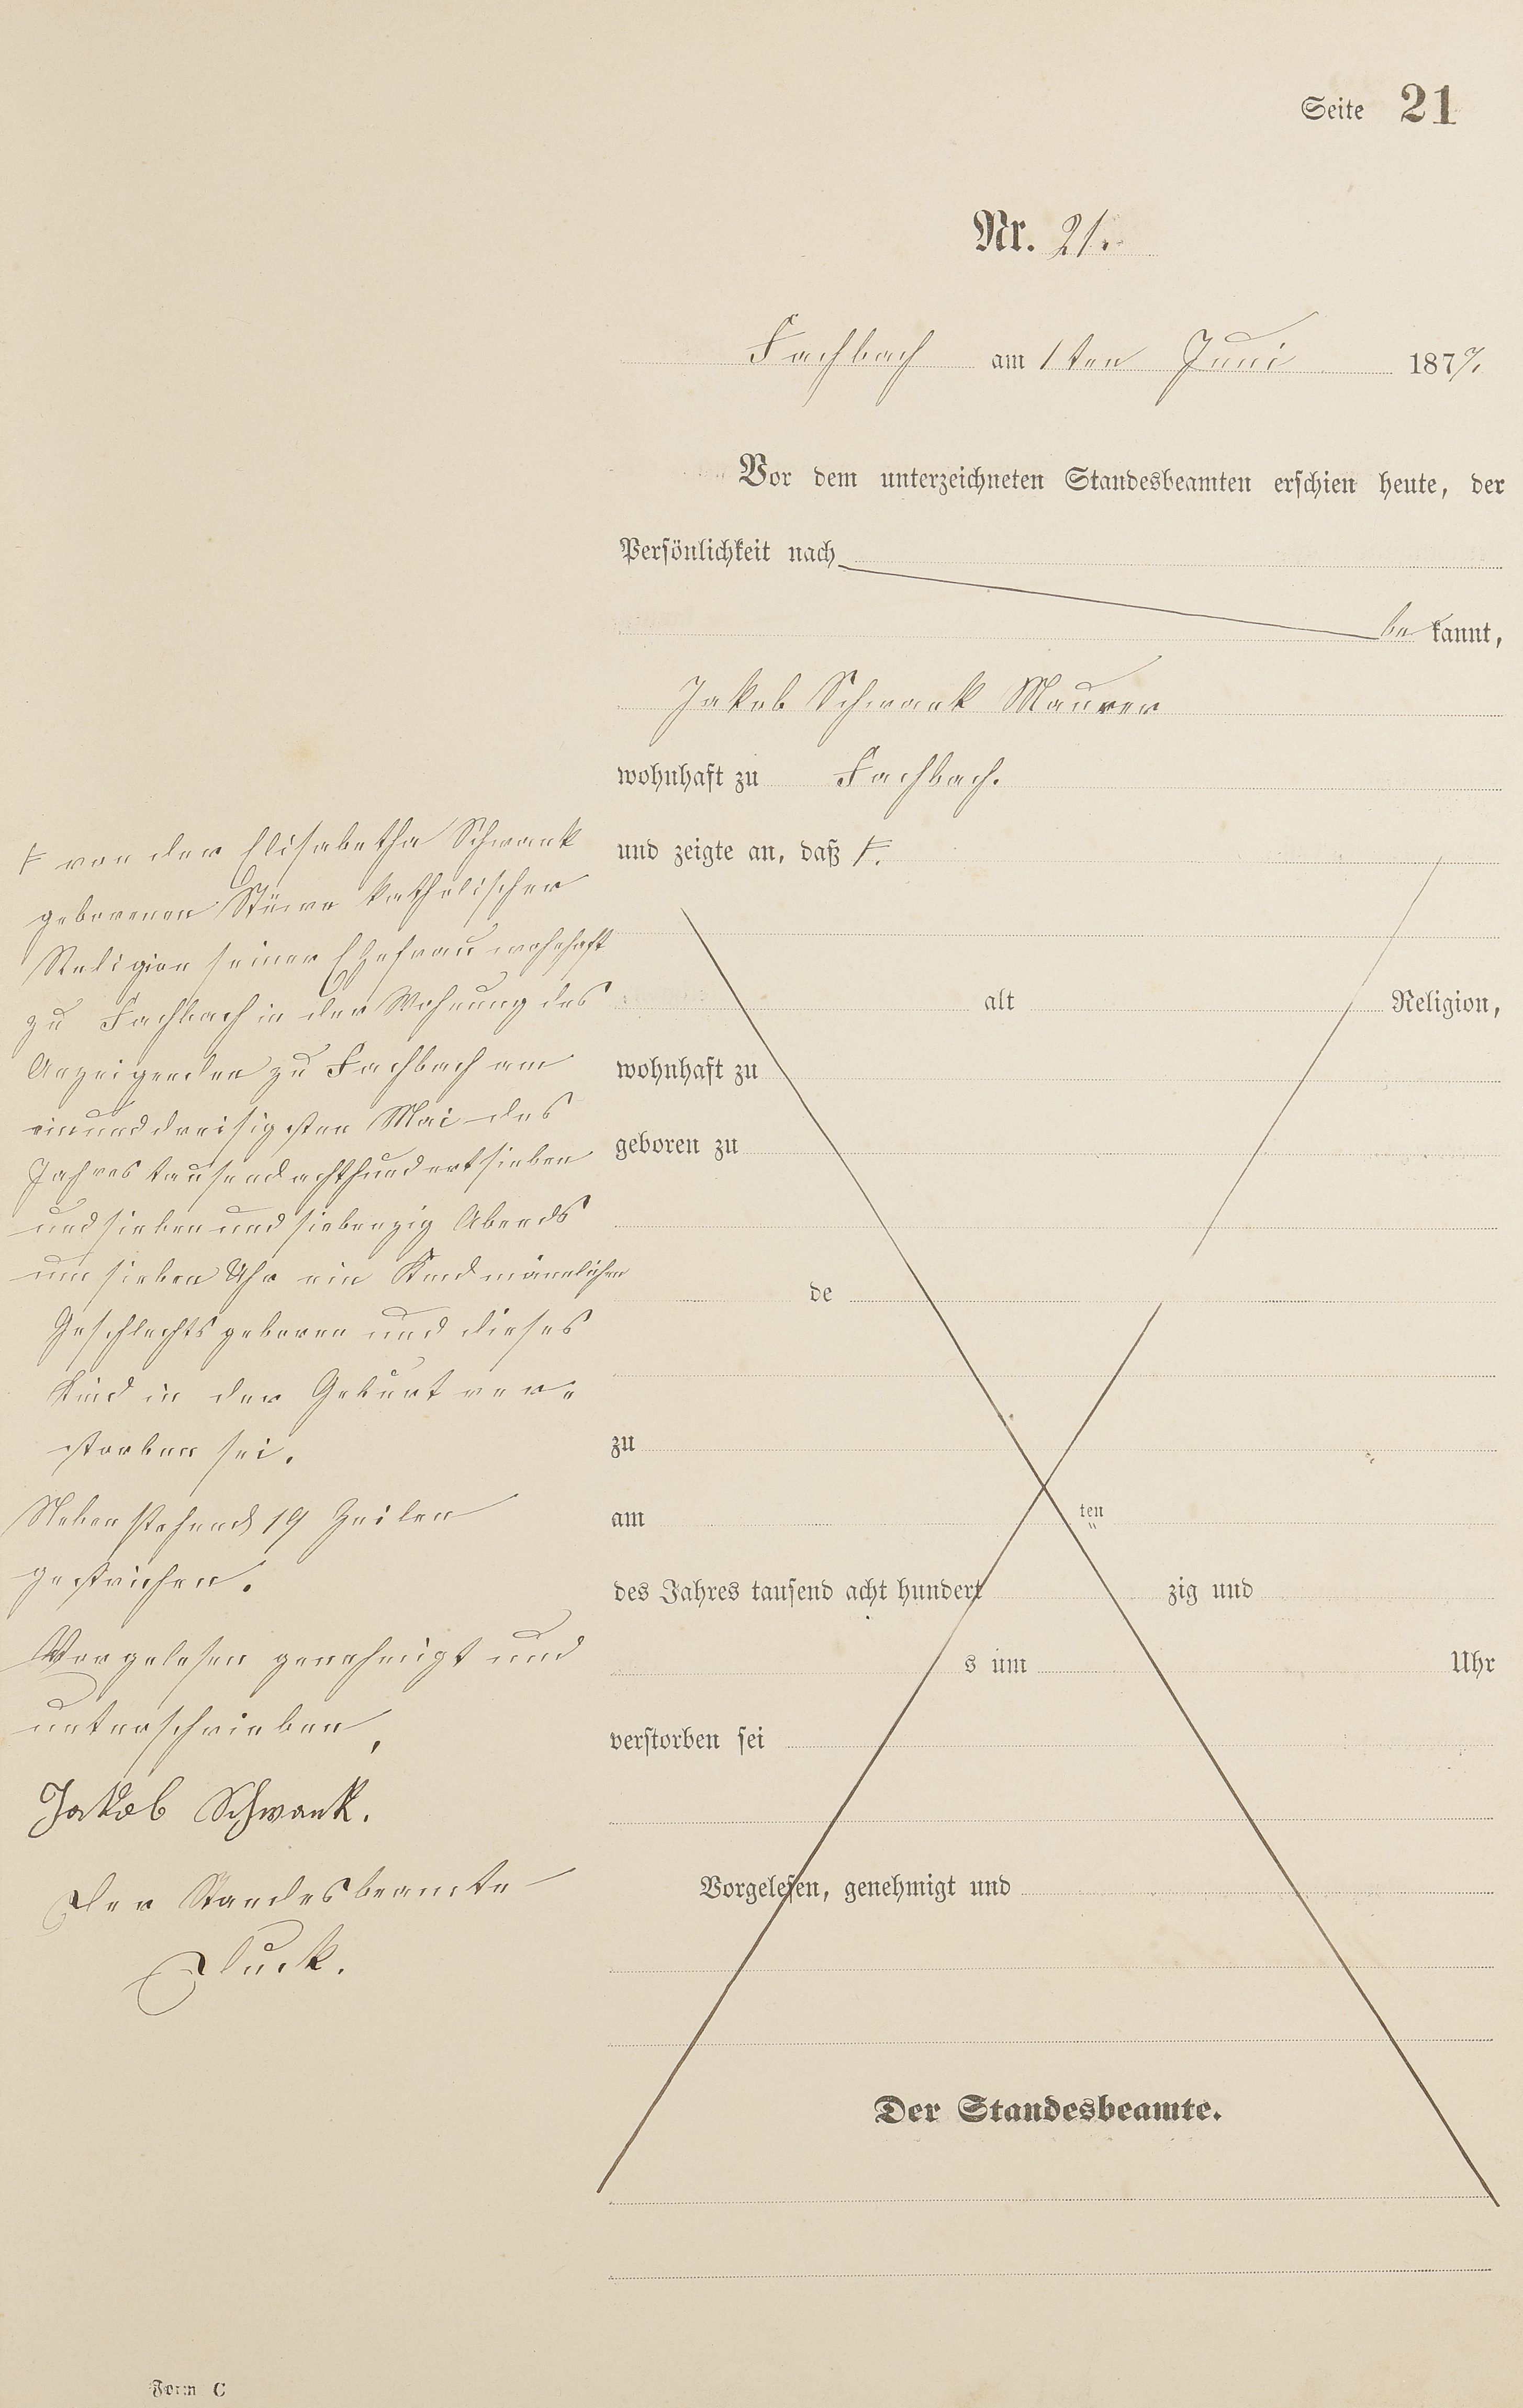 Seite 21
Nr. 21.
Fachbach am 1ten Juni 1877.
Vor dem unterzeichneten Standesbeamten erschien heute, der
Persönlichkeit nach
be kannt,
Jakob Schwank Maurer
wohnhaft zu Fachbach.
und zeigte an, daß ⊬.
alt Religion,
wohnhaft zu
geboren zu
de
zu
am ten
des Jahres tausend acht hundert zig und
s um Uhr
verstorben sei
Vorgelesen, genehmigt und
Der Standesbeamte.
⊬ von der Elisabetha Schwank
geborenen katholischer
Religion seiner Ehefrau wohnhaft
zu Fachbach in der Wohnung des
Anzeigenden zu Fachbach am
einunddreisigsten Mai des
Jahres tausendachthundertsieben
undsieben und siebenzig Abends
um sieben Uhr ein Kind männlichen
Geschlechts geboren und dieses
Kind in der Geburt ver„
storben sei.
Nebenstehend 19 Zeilen
gestrichen.
Vorgelesen genehmigt und
unterschrieben,
Jakob Schwank.
Der Standesbeamte
Form C